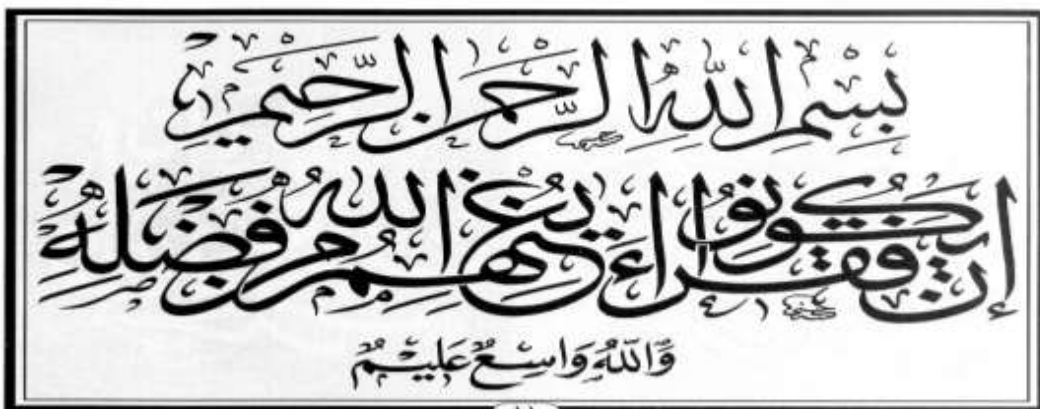 بِسْمِ اللهِ الرَّحْمٰنِ الرَّحِيْمِ
إِنْ يَكُوْنُوْا فُقَرَاءَ يُغْنِهِمُ اللهُ مِنْ فَضْلِهِ
وَاللهُ وَاسِعٌ عَلِيْمٌ